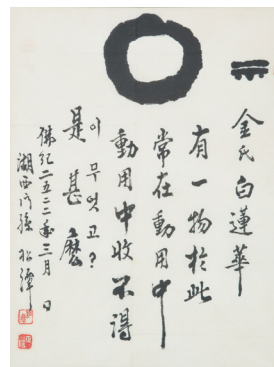 金氏白蓮華
有一物於此
常在動用中
動用中收不得
이 무 엇 고?
是甚麼
佛紀二五二二年三月 日
湖西 孫 松潭